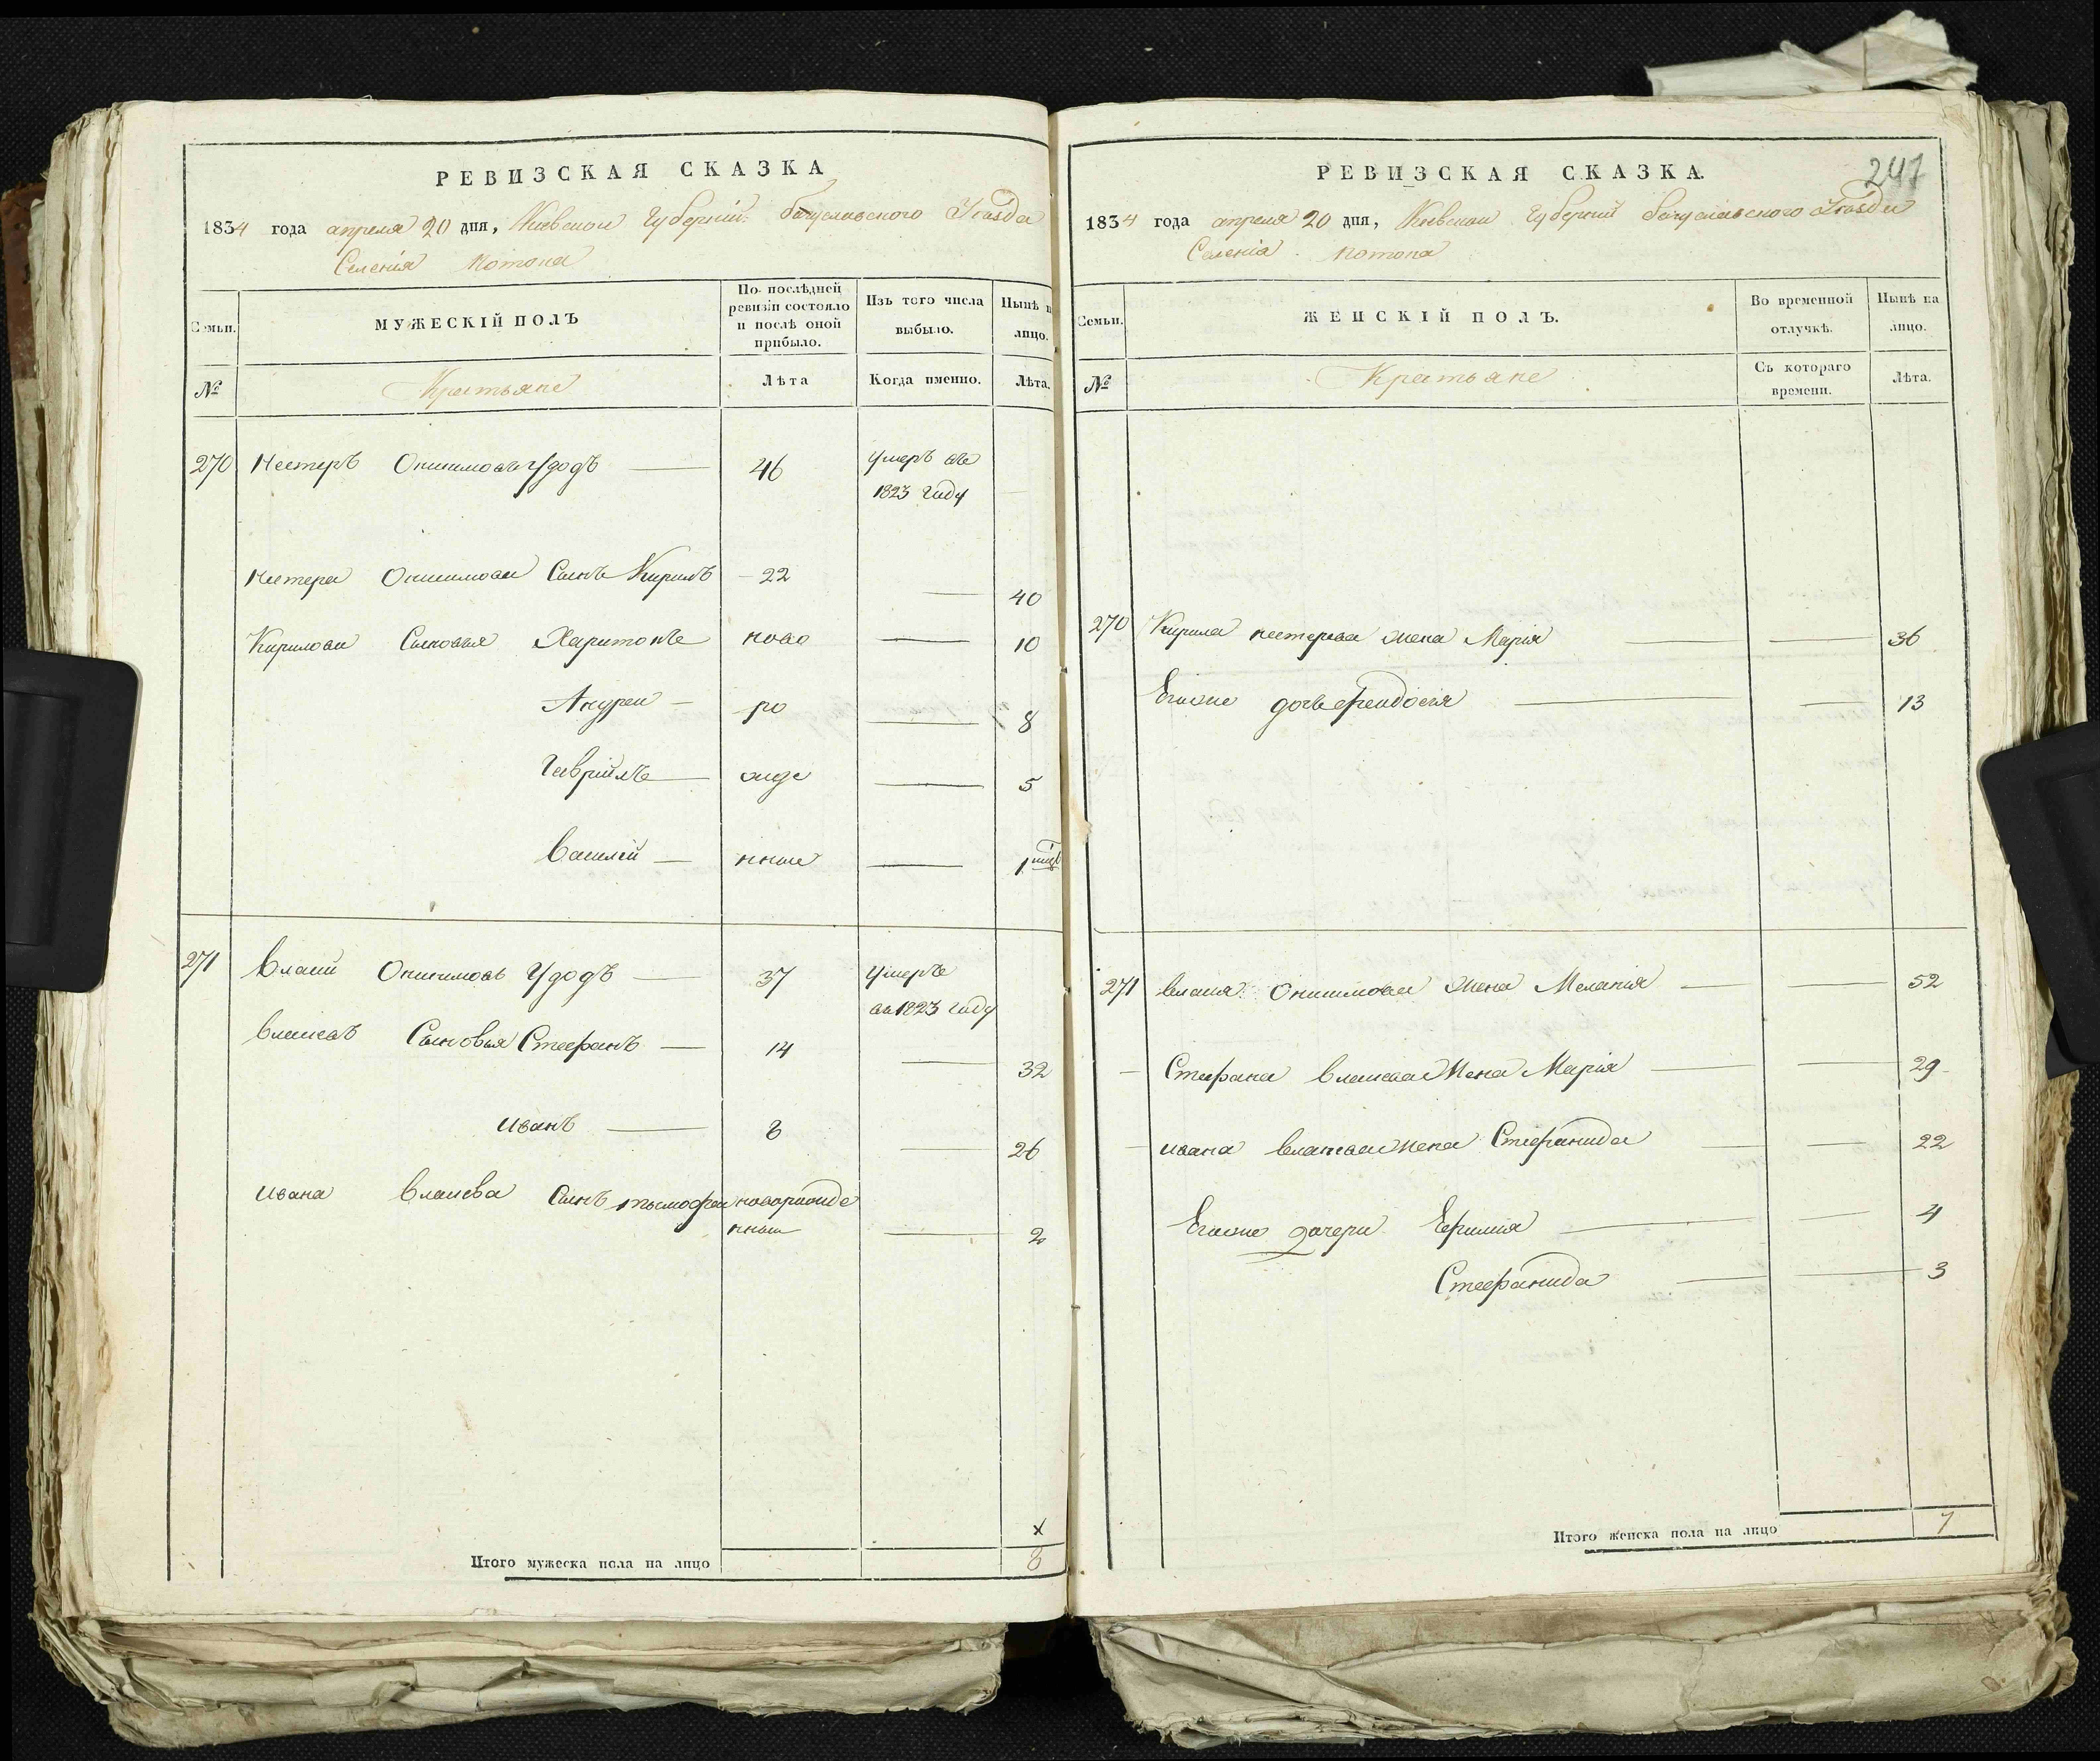 РЕВИЗСКАЯ СКАЗКА
1834 года апреля 20 дня, Киевской Губерніи Богуславского Уезда
Селенія Потока
Семьи. МУЖЕСКІЙ ПОЛЪ По послѣдней ревизіи состояло и послѣ оной прибыло. Изъ того числа выбыло. Нынѣ н лицо.
№ Крестьяне Лѣта Когда именно. Лѣта.
270 Нестеръ Онисимовъ Удодъ 46 умеръ въ
1823 году
Нестера Онисимова Сынъ Кирилъ 22 40
Кирилова Сыновья Харитонъ ново 10
Андреи ро 8
Гаврійлъ онде 5
Василій нные 1 мцъ
271 Власій Онисимовъ Удодъ 37 умеръ
въ 1823 году
Власовъ Сыновья Стефанъ 14 32
Иванъ 8 26
Ивана Власева Сынъ тымофеи новорожде
нныи 2
Итого мужеска пола на лицо 8
247
РЕВИЗСКАЯ СКАЗКА.
1834 года апреля 20 дня, Киевской Губерніи Богуславского Уезда
Селенія Потока
Семьи. ЖЕНСКІЙ ПОЛЪ. Во временной отлучкѣ. Нынѣ на лицо.
№ Крестьяне Съ котораго времени. Лѣта.
270 Кирила нестерова жена Марія 36
Егоже дочь феидосия 13
271 Власия Онисимова жена Меланія 52
Стефана Власева жена Марія 29
Ивана Власева жена Стефанида 22
Егоже дочери Ефимія 4
Стефанида 3
Итого женска пола на лицо 7